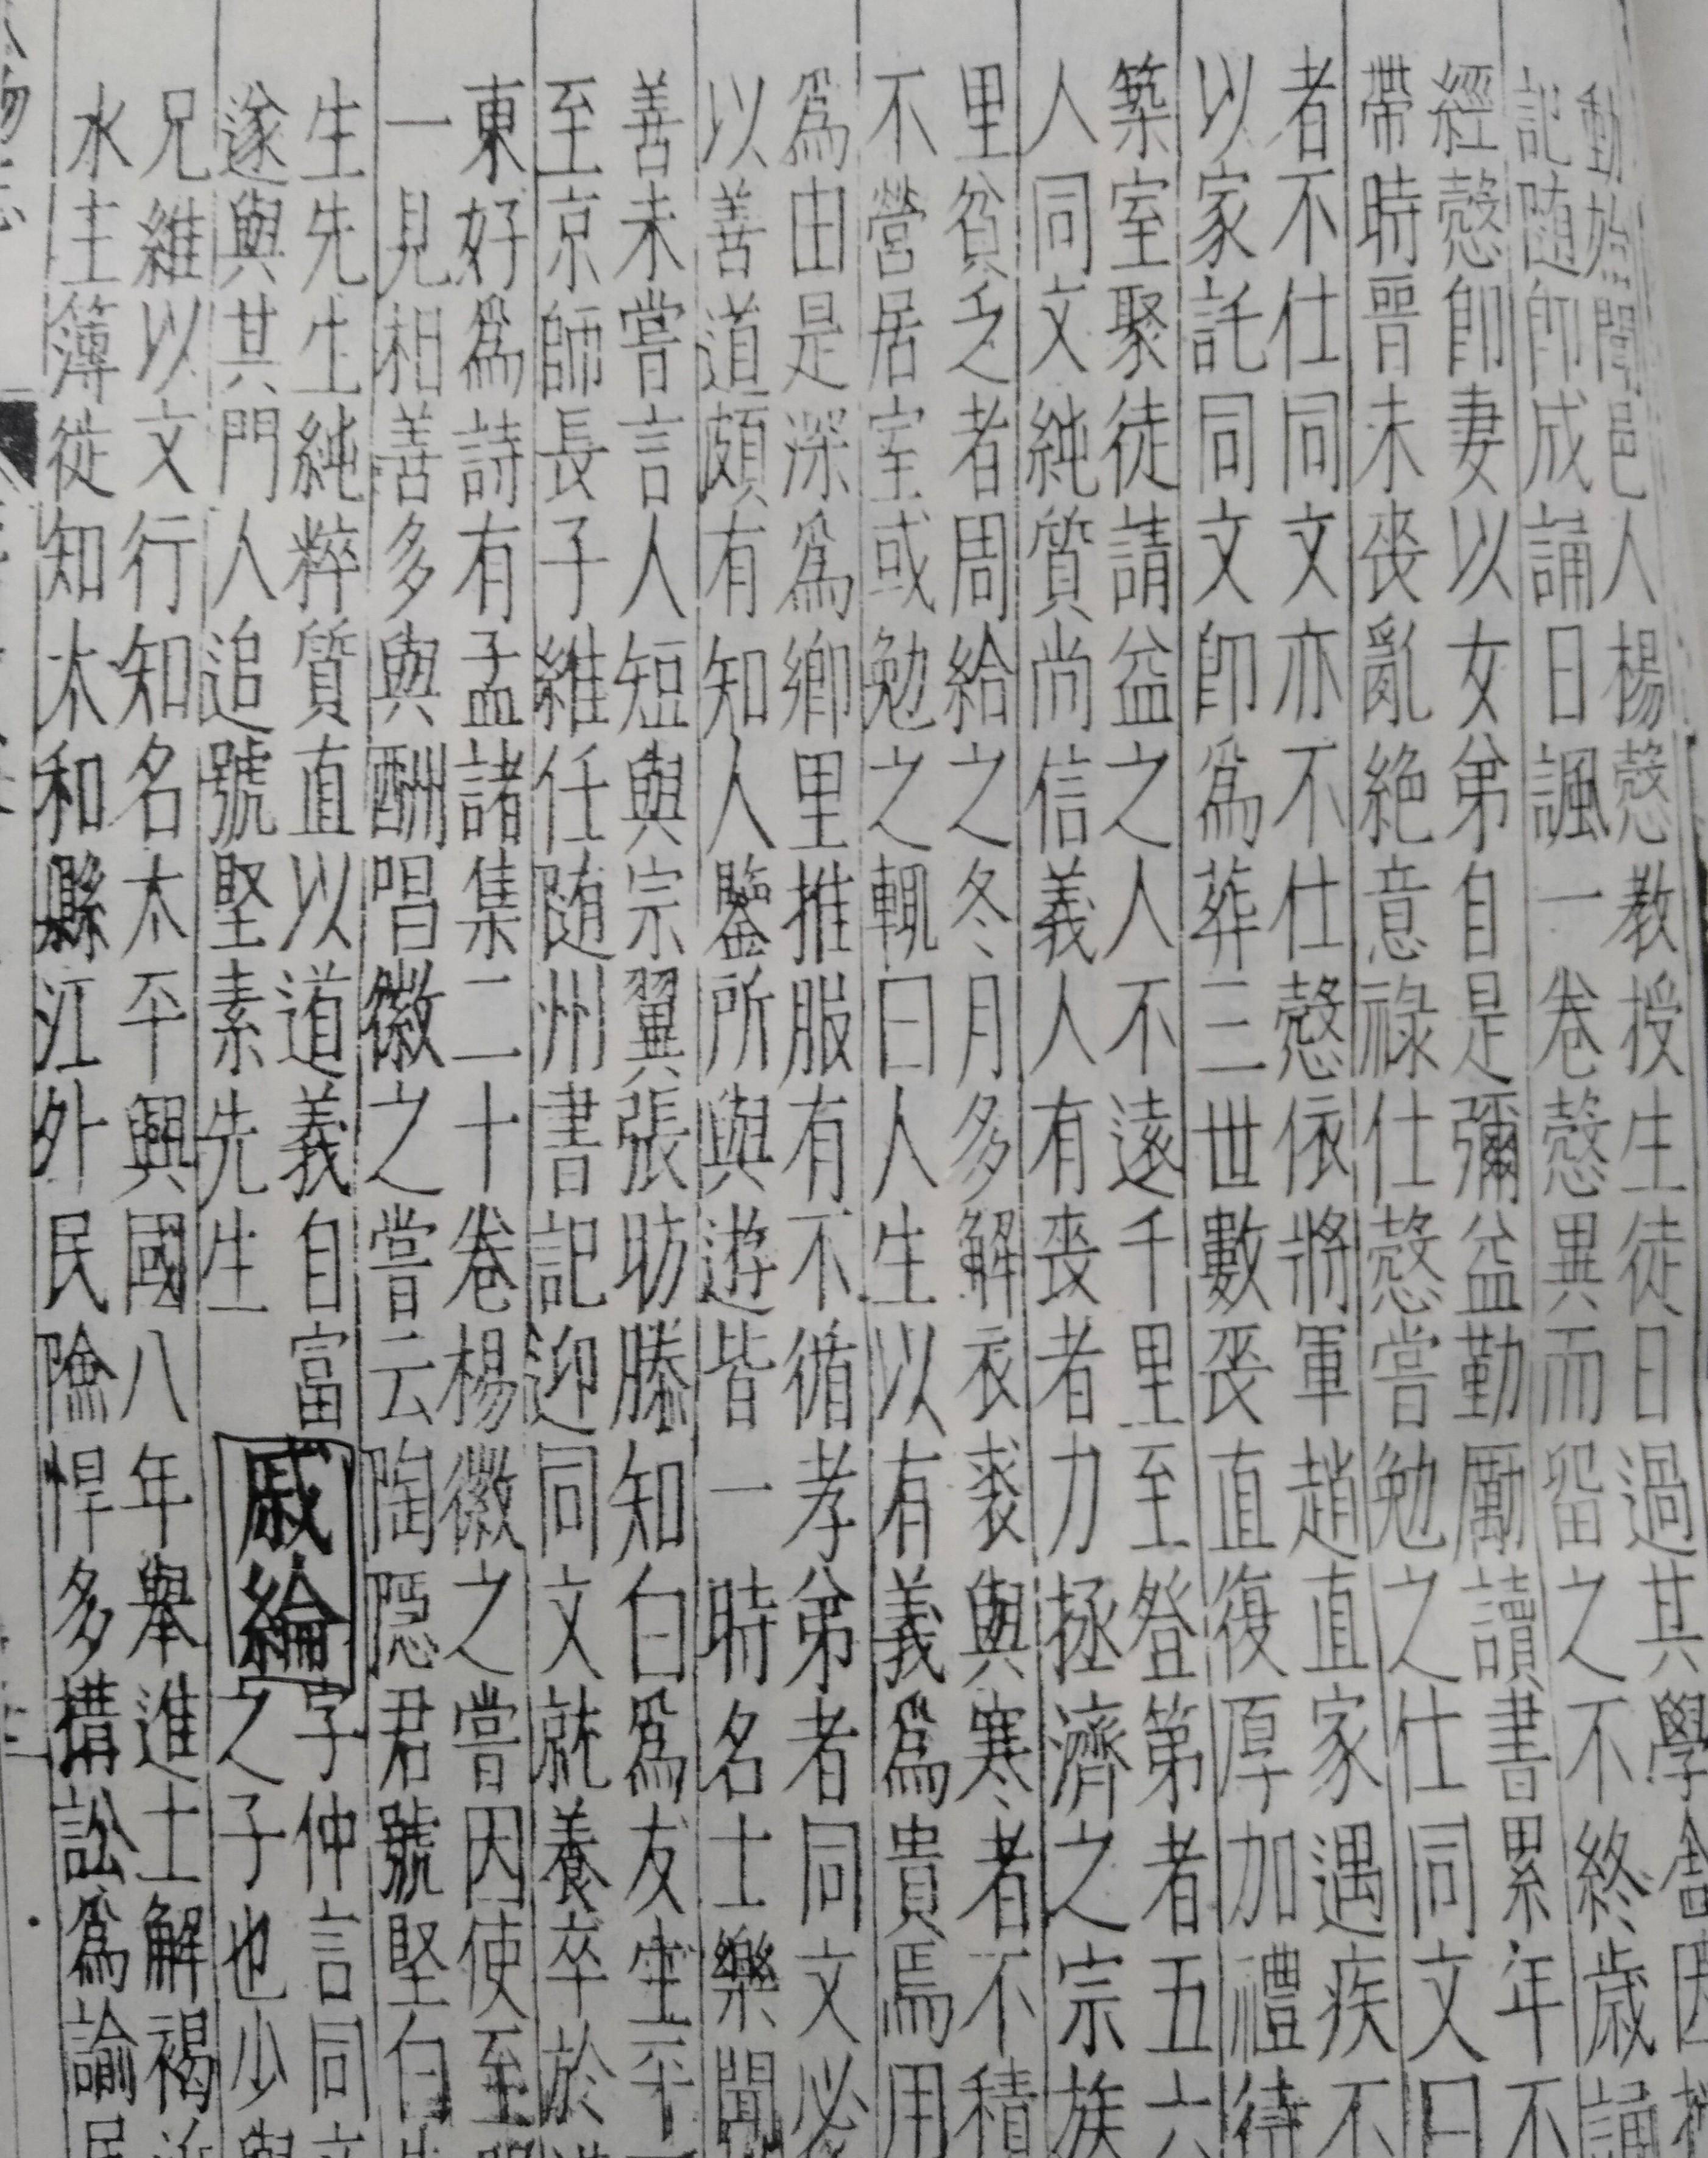 動始聞邑人楊慤教授生徒日過其學舍因
記随即成誦日諷一卷慤異而留之不終歲誦
經慤即妻以女弟自是彌益勤厲讀書累年不
帶時晉未喪亂絕意祿仕慤嘗勉之仕同文曰
者不仕同文亦不仕慤依將軍趙直家遇疾不
以家託同文即為葬三世數喪直復厚加禮待
築室聚徒請益之人不遠千里至登第者五六
人同文純質尚信義人有喪者力拯濟之宗族
里貧乏者周給之冬月多解衣裘與寒者不積
不營居室或勉之輒曰人生以有義為貴焉用
為由是深為鄉里推服有不循孝弟者同文必
以善道頗有知人鑒所與遊皆一時名士樂聞
善未嘗言人短與宗翼張昉滕知白為友生平
至京師長子維任随州書記迎同文就養卒於
東好為詩有孟諸集二十卷楊徽之嘗因使至
一見相善多與酬唱徽之嘗云陶隱君號堅白
生先生純粹質直以道義自富
遂與其門人追號堅素先生
戚綸
字仲言同
之子也少
兄維以文行知名太平興國八年舉進士解褐
水主簿徙知太和縣江外民險悍多搆訟為諭